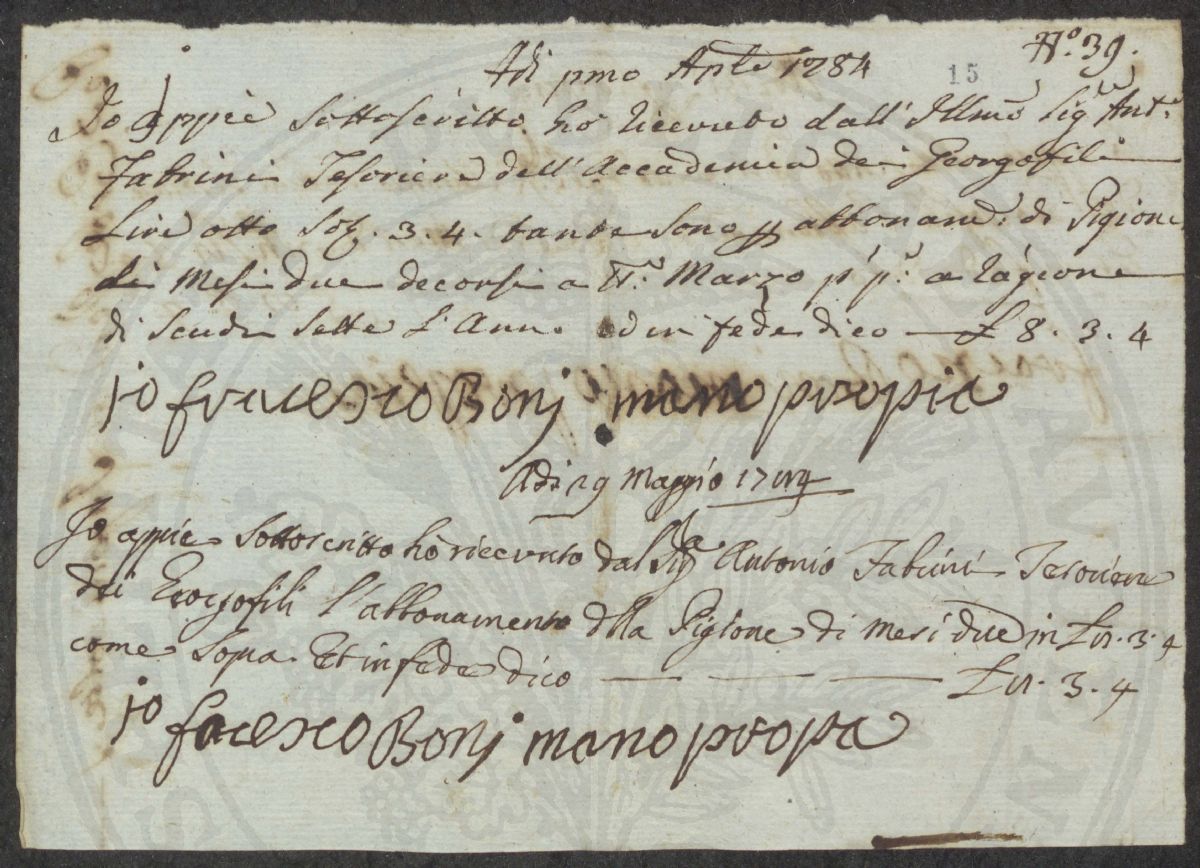 N.° 39.
Adi pmo Aple 1784
15
Io appiè sottoscritto ho ricevuto dall' Illmo Sig.re Ant.°
Fabrini Tesoriere dell' Accademia dei Georgofili
Lire otto sol. 3. 4. tante sono p abbonam.° di Pigione
di Mesi due decorsi a tt.° Marzo p.° p.° a ragione
di scudi sette l' Anno ed in fede dico — £ 8. 3. 4
io fracesco Bonj mano propia
Adi 29 Maggio 1784
Io appiè sottoscritto hò ricevuto dal Sig.re Antonio Fabrini Tesoriere
dei Georgofili l' abbonamento della Pigione di mesi due in £ 8. 3. 4
come sopra. Et in fede dico — — — £ 8. 3. 4
io facesco Bonj mano propa